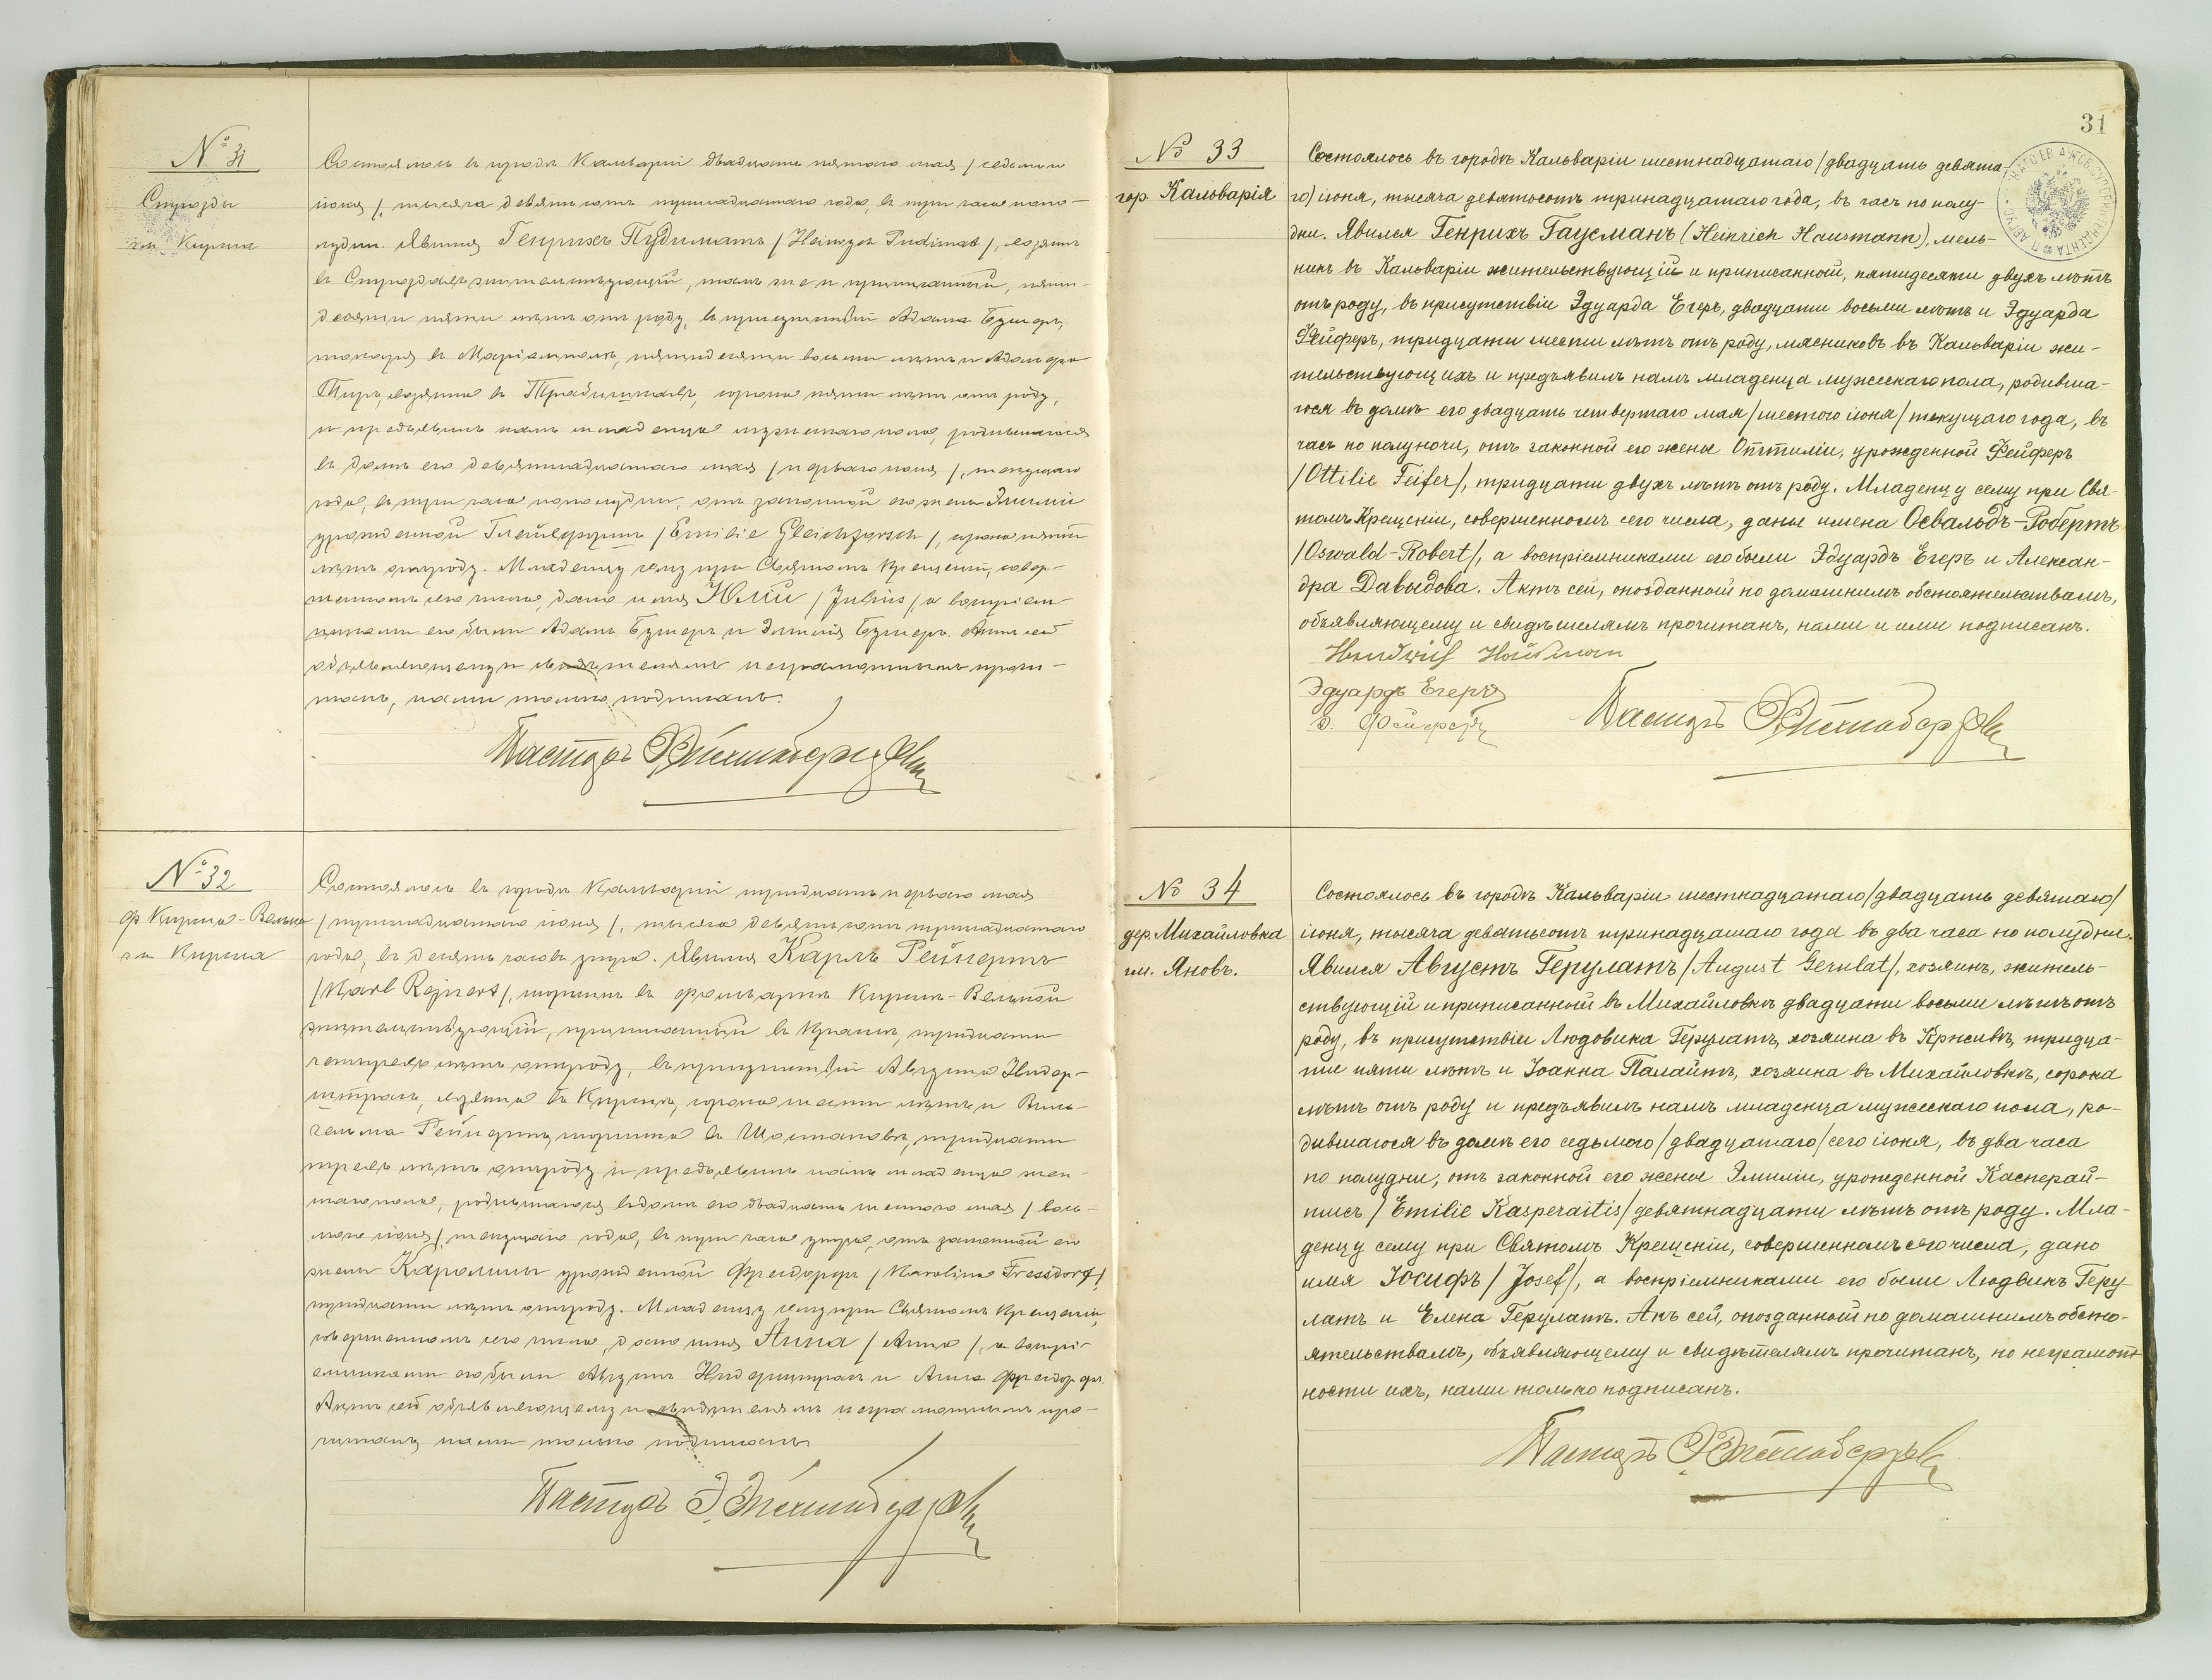 № 31
гм. Кирша
Состоялось въ городѣ Кальваріи двадцать пятаго мая / седьмого
іюня /, тысяча девятьсотъ тринадцатаго года, въ три часа попо-
лудни. Явился Генрихъ Пудиматъ / Heinrych Pudimat /, хозяинъ
жительствующій, тамъ же и приписанный, пяти-
десяти пяти лѣтъ отъ роду, въ присутствіи Адама
въ Маріамполѣ, пятидесяти восьми лѣтъ и Адольфа
хозяина въ сорока пяти лѣтъ отъ роду,
и предъявилъ намъ младенца мужескаго пола, родившагося
въ домѣ его девятнадцатаго мая / перваго іюня /, текущаго
года, въ три часа пополудни, отъ законной его жены Эмиліи
урожденной / Emilie Gleichforsch /, сорока пяти
лѣтъ отъ роду. Младенцу сему при Святомъ Крещеніи, совер-
шенномъ сего числа, дано имя Юлій / Julius /, а воспріем
никами его были Адамъ и Эмилія Актъ сей
объявляющему и свидѣтелямъ неграмотнымъ прочи-
танъ, нами только подписанъ.
Пасторъ
№ 32
ф. Кирша-Велька
гм. Кирша
Состоялось въ городѣ Кальваріи тридцать перваго мая
/ тринадцатаго іюня /, тысяча девятьсотъ тринадцатаго
года, въ девять часовъ утра. Явился Карлъ Рейнертъ
/ Karl Rejnert /, въ фольваркѣ
жительствующій, приписанный въ тридцати
четырехъ лѣтъ отъ роду, въ присутствіи Августа Нидер-
штрасъ, хозяина въ сорока шести лѣтъ и Виль-
гельма Рейнертъ, въ тридцати
трехъ лѣтъ отъ роду и предъявилъ намъ младенца жен-
скаго пола, родившагося въ домѣ его двадцать шестого мая / вось-
мого іюня /, текущаго года, въ три часа утра, отъ законной его
жены Каролины урожденной Фрейдорфъ / Karolina Fressdorf /
тридцати лѣтъ отъ роду. Младенцу сему при Святомъ Крещеніи,
совершенномъ сего числа, дано имя Анна / Anna /, а воспрі-
емниками его были Августъ Нидерштрасъ и Анна Фрейдорфъ.
Актъ сей объявляющему и свидѣтелямъ неграмотнымъ про-
читанъ нами только подписанъ
Пасторъ
31
№ 33
гор. Кальварія
Состоялось въ городѣ Кальваріи шестнадцатаго / двадцать девята-
го) іюня, тысяча девятьсотъ тринадцатаго года, въ часъ по полу-
дни. Явился Генрихъ Гаусманъ (Heinrich Hausmann), мель-
никъ въ Кальваріи жительствующій и приписанной, пятидесяти двухъ лѣтъ
отъ роду, въ присутствіи Эдуарда Егеръ, двадцати восьми лѣтъ и Эдуарда
Фейферъ, тридцати шести лѣтъ отъ роду, мясниковъ въ Кальваріи жи-
тельствующихъ и предъявилъ намъ младенца мужескаго пола, родивша-
гося въ домѣ его двадцать четвертаго мая / шестого іюня / текущаго года, въ
часъ по полуночи, отъ законной его жены Оттиліи, урожденной Фейферъ
/ Ottilie Feifer /, тридцати двухъ лѣтъ отъ роду. Младенцу сему при Свя-
томъ Крещеніи, совершенномъ сего числа, даны имена Освальдъ-Робертъ
/ Oswald-Robert /, а воспріемниками его были Эдуардъ Егеръ и Алексан-
дра Давыдова. Актъ сей, опозданной по домашнимъ обстоятельствамъ,
объявляющему и свидѣтелямъ прочитанъ, нами и ими подписанъ.
Эдуардъ Егеръ
Э. Фейферъ
Пасторъ
№ 34
дер. Михайловка
гм. Яновъ.
Состоялось въ городѣ Кальваріи шестнадцатаго / двадцать девятаго /
іюня, тысяча девятьсотъ тринадцатаго года въ два часа по полудни.
Явился Августъ Герулатъ / August Gerulat /, хозяинъ, житель-
ствующій и приписанной въ Михайловкѣ двадцати восьми лѣтъ отъ
роду, въ присутствіи Людовика Герулатъ, хозяина въ Крживѣ, тридца-
ти пяти лѣтъ и Іоанна Палайтъ, хозяина въ Михайловкѣ, сорока
лѣтъ отъ роду и предъявилъ намъ младенца мужескаго пола, ро-
дившагося въ домѣ его седьмого / двадцатаго / сего іюня, въ два часа
по полудни, отъ законной его жены Эмиліи, урожденной Касперай-
тисъ / Emilie Kasperaitis / девятнадцати лѣтъ отъ роду. Мла-
денцу сему при Святомъ Крещеніи, совершенномъ сего числа, дано
имя Іосифъ / Josef /, а воспріемниками его были Людвикъ Геру-
латъ и Елена Герулатъ. Акъ сей, опозданной по домашнимъ обсто-
ятельствамъ, объявляющему и свидѣтелямъ прочитанъ, но неграмот-
ности ихъ, нами только подписанъ.
Пасторъ